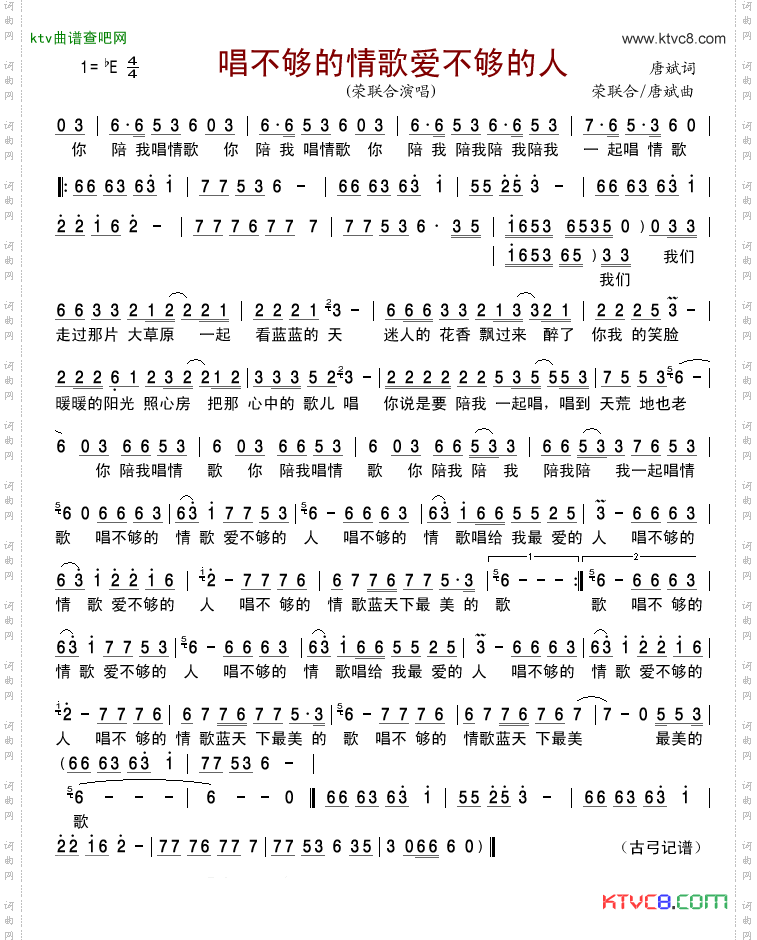 ktv曲谱查吧网
www.ktvc8.com
1=♭E 4/4
唱不够的情歌爱不够的人
唐斌词
(荣联合演唱)
荣联合/唐斌曲
0 3 | 6·6 5 3 6 0 3 | 6·6 5 3 6 0 3 | 6·6 5 3 6·6 5 3 | 7·6 5·3 6 0 |
你 陪 我唱情歌 你 陪 我 唱情歌 你 陪 我 陪我陪 我陪我 一 起唱 情 歌
|: 66 63 63 1 | 7 7 5 3 6 - | 66 63 63 1 | 55 25 3 - | 66 63 63 1 |
2 2 1 6 2 - | 7 7 7 6 7 7 7 | 7 7 5 3 6· 3 5 | 1653 6535 0 ) 0 3 3 |
| 1653 65 ) 3 3 我们
我们
6 6 3 3 2 1 2 2 2 1 | 2 2 2 1 3 - | 6 6 6 3 3 2 1 3 3 2 1 | 2 2 2 5 3 - |
走过那片 大草原 一起 看蓝蓝的 天 迷人的 花香 飘过来 醉了 你我 的笑脸
2 2 2 6 2 3 2 2 1 2 | 3 3 3 5 2 3 - | 2 2 2 2 2 2 5 5 3 5 5 3 | 7 5 5 3 6 - |
暖暖的阳光 照心房 把那 心中的 歌儿 唱 你说是要 陪我 一起唱，唱到 天荒 地也老
6 0 3 6 6 5 3 | 6 0 3 6 6 5 3 | 6 0 3 6 6 5 3 | 6 6 5 3 3 7 6 5 3 |
你 陪我唱情 歌 你 陪我唱情 歌 你 陪我 陪 我 陪我陪 我一起唱情
6 0 6 6 6 3 | 6 3 1 7 7 5 3 | 6 - 6 6 6 3 | 6 3 1 6 6 5 5 2 5 | 3 - 6 6 6 3 |
歌 唱不够的 情 歌 爱不够的 人 唱不够的 情 歌唱给 我最 爱的 人 唱不够的
6 3 1 2 2 1 6 | 2 - 7 7 7 6 | 6 7 7 6 7 7 5·3 | 6 - - - :| 6 - 6 6 6 3 |
1
2
情 歌 爱不够的 人 唱不 够的 情 歌蓝天下最 美 的 歌 歌 唱不 够的
6 3 1 7 7 5 3 | 6 - 6 6 6 3 | 6 3 1 6 6 5 5 2 5 | 3 - 6 6 6 3 | 6 3 1 2 2 1 6 |
情 歌 爱不够的 人 唱不够的 情 歌唱给 我最 爱的 人 唱不够的 情 歌 爱不够的
2 - 7 7 7 6 | 6 7 7 6 7 7 5·3 | 6 - 7 7 7 6 | 6 7 7 6 7 6 7 | 7 - 0 5 5 3 |
人 唱不 够的 情 歌蓝天 下最美 的 歌 唱不 够的 情歌蓝天 下最美 最美的
( 66 63 63 1 | 77 53 6 - |
6 - - - | 6 - - 0 || 66 63 63 1 | 55 25 3 - | 66 63 63 1 |
歌
22 16 2 - | 77 76 77 7 | 77 53 6 35 | 3 066 6 0 ) ||
（古弓记谱）
KTVC8.COM